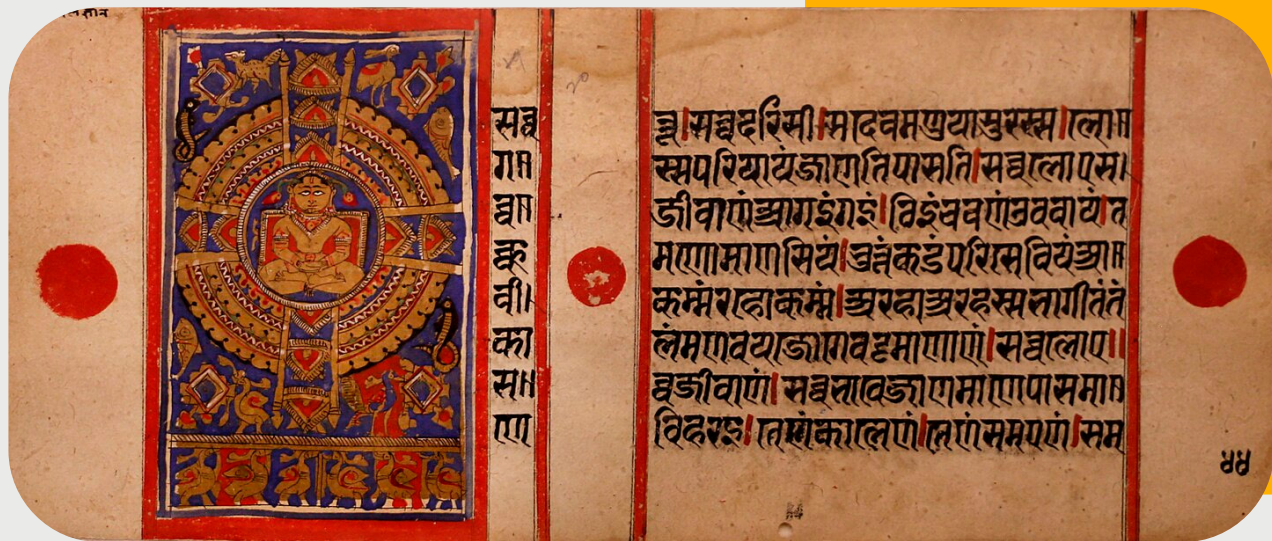 सव्व न्नू।सव्वदरिसी।सदेवमणुयासुरस्स।लो॥
ग॥ स्सपरियायंजाणतिपासति।सव्वलोएस।
व्व॥ जीवाणंआगइंगइं।ठिइंचवणंउववायं।त
क्क मणोमाणसियं।भुत्तंकडंपरिसेवियंआ॥
वी। कम्मंरहोकम्मं।अरहाअरहस्सभागीतंतं
का लंमणवयजोगेवट्टमाणाणं।सव्वलोए॥
स॥ व्वजीवाणं।सव्वभावेजाणमाणेपासमा॥
णे विहरइ।तेणंकालेणं।तेणंसमएणं।सम
४४